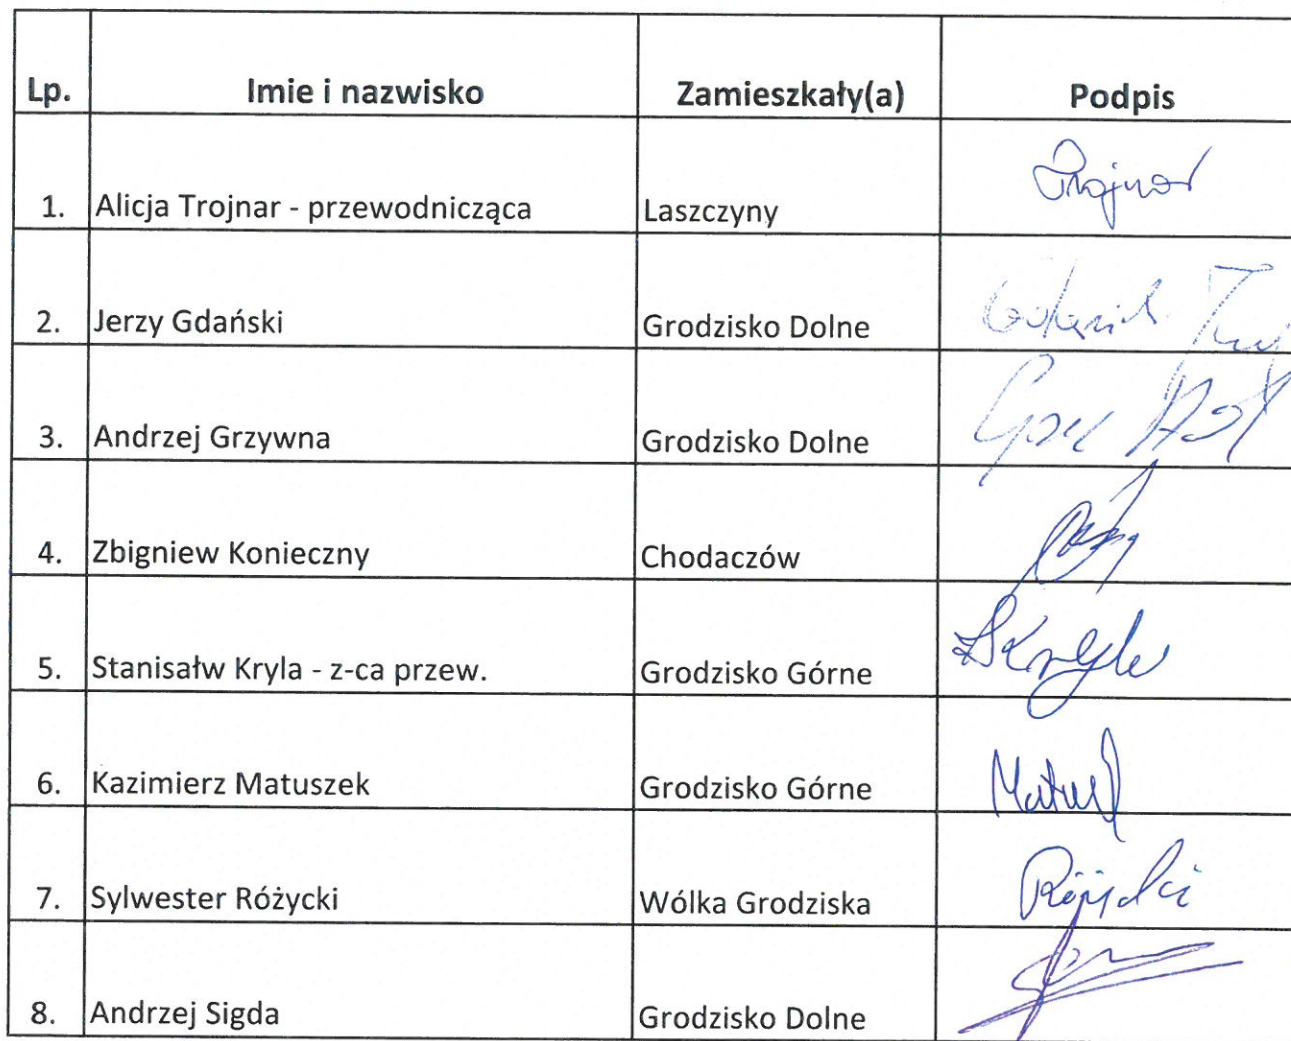 Lp. Imie i nazwisko Zamieszkały(a) Podpis
1. Alicja Trojnar - przewodnicząca Laszczyny Trojnar
2. Jerzy Gdański Grodzisko Dolne
3. Andrzej Grzywna Grodzisko Dolne
4. Zbigniew Konieczny Chodaczów
5. Stanisałw Kryla - z-ca przew. Grodzisko Górne
6. Kazimierz Matuszek Grodzisko Górne
7. Sylwester Różycki Wólka Grodziska
8. Andrzej Sigda Grodzisko Dolne